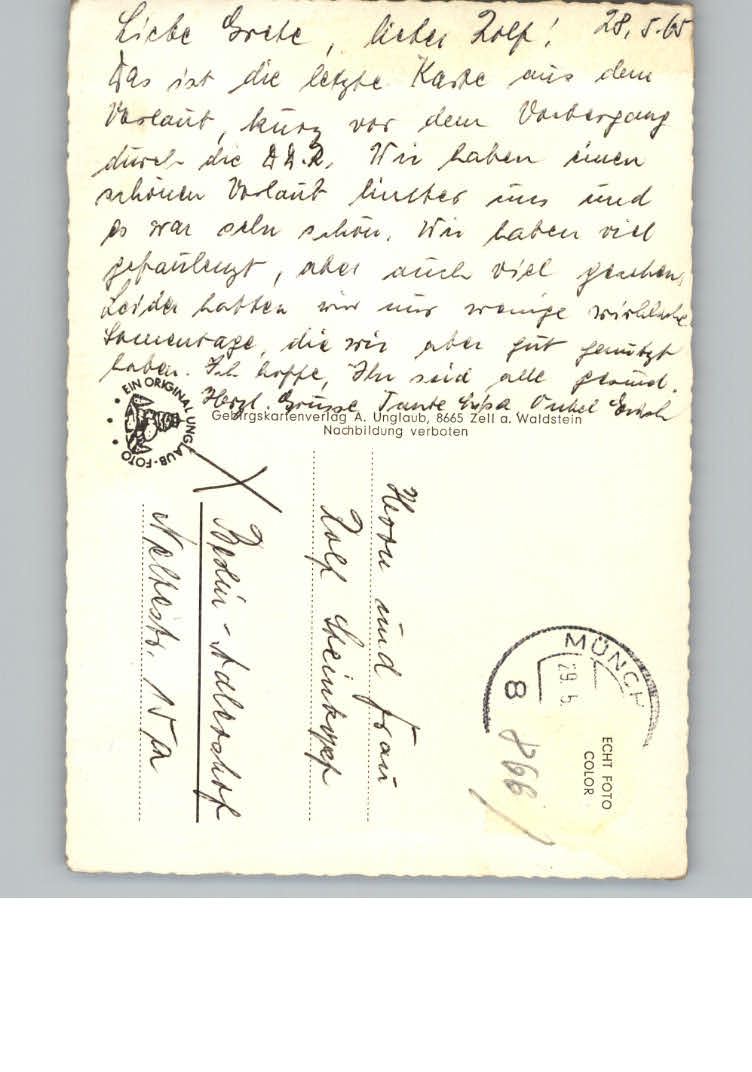 Liebe Grete, lieber Rolf! 28.5.65
Das ist die letzte Karte aus dem
Urlaub, kurz vor dem
durch die D.D.R. Wir haben einen
schönen Urlaub hinter uns und
es war sehr schön. Wir haben viel
gefaulenzt, aber auch viel gesehen.
Leider hatten wir nur wenige wirkliche
Sonnentage, die wir aber gut genutzt
haben. Ich hoffe, Ihr seid alle gesund.
Herzl. Grüsse Tante Onkel Erich
Gebirgskartenverlag A. Unglaub, 8665 Zell a. Waldstein
Nachbildung verboten
EIN ORIGINAL UNGLAUB-FOTO
Herrn und Frau
Rolf
Berlin-Adlershof
Nelkestr. 15a
MÜNCH
29.5.
8
ECHT FOTO
COLOR
866